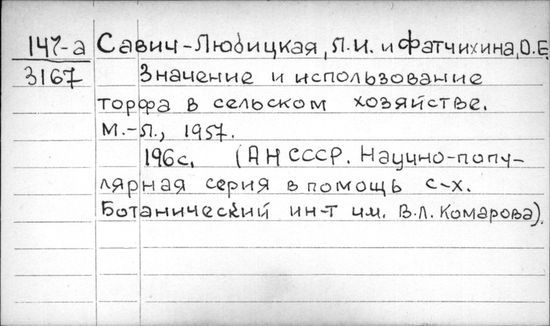 147-а Савич-Любицкая, Л.И. и Фатчихина, О.Е.
3167 Значение и использование
торфа в сельском хозяйстве.
М.-Л., 1957.
196с. (АН СССР. Научно-попу-
лярная серия в помощь с-х.
Ботанический ин-т им. В.Л. Комарова).